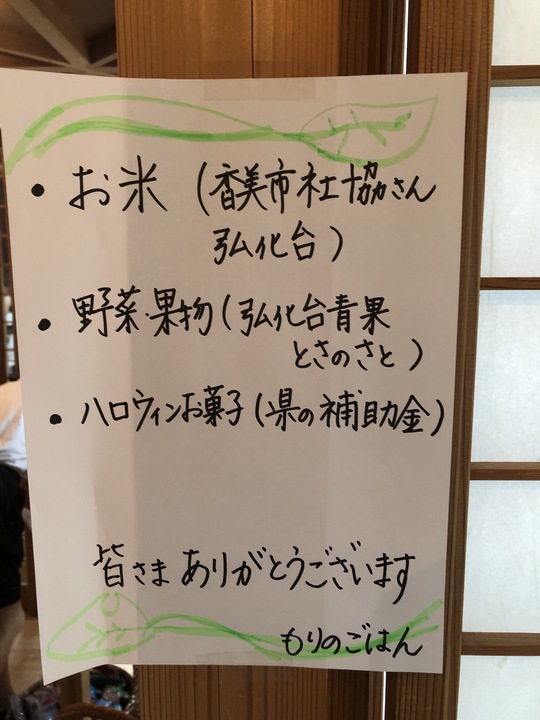 • お米 (香美市社協さん
弘化台)
• 野菜・果物 (弘化台青果
とさのさと)
• ハロウィンお菓子 (県の補助金)
皆さま ありがとうございます
もりのごはん